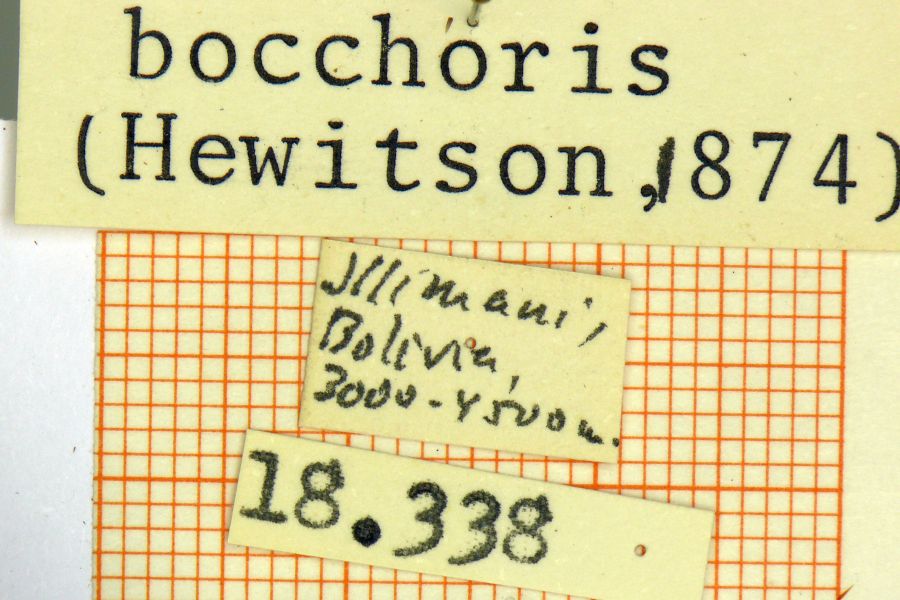 bocchoris
(Hewitson,1874)
Illimani,
Bolivia,
3000-4500m.
18.338